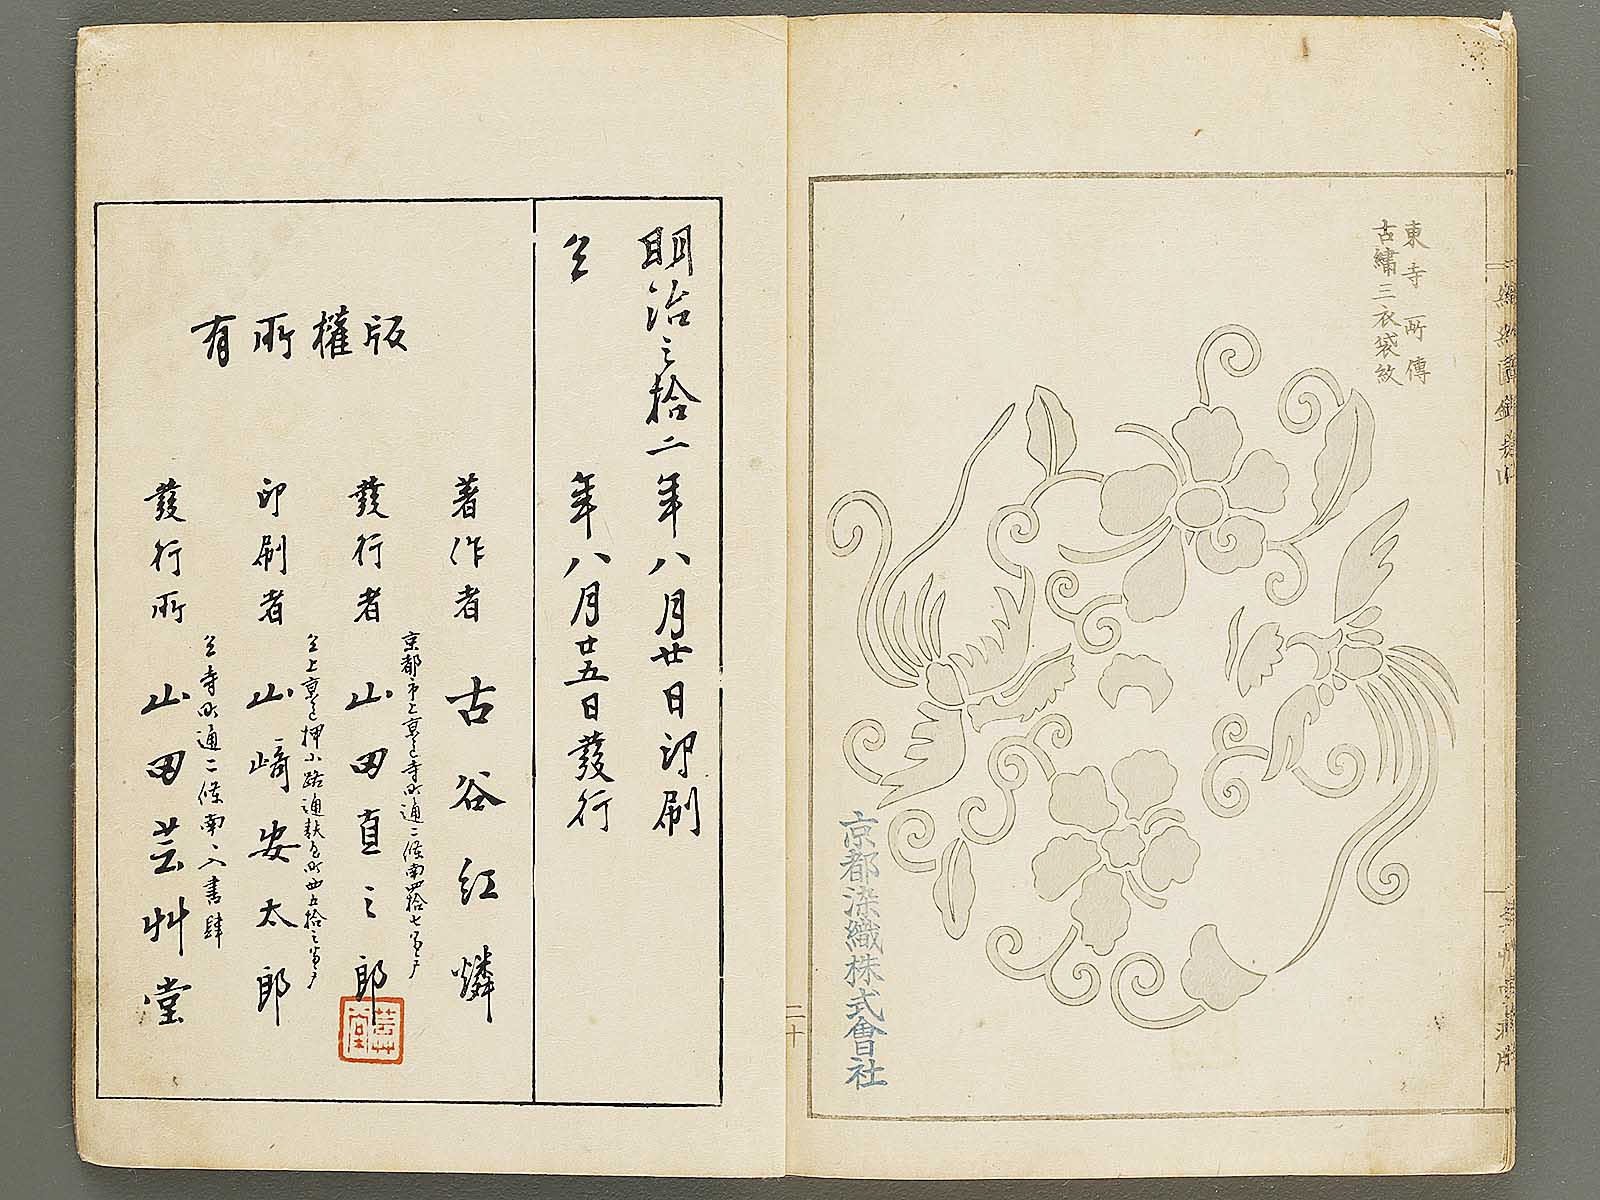 東寺所傳
古繡三衣袋紋
京都染織株式會社
二十
明治三拾二年八月廿日印刷
仝 年八月廿五日發行
版權所有
著作者 古谷紅麟
京都市上京區寺町通二條南四拾七番戸
發行者 山田直三郎
芸艸堂
仝上京區押小路通麸屋町西五拾三番戸
印刷者 山崎安太郎
仝寺町通二條南へ入書肆
發行所 山田芸艸堂